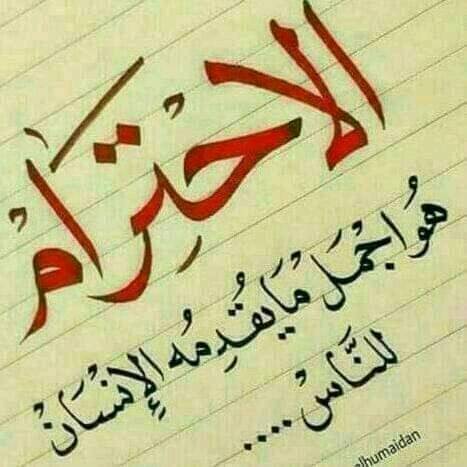 الاحْتِرَامْ
هُوَ اجْمَلْ مَايُقَدِمُه الإِنْسَانْ
للنَّاسْ ....
elhumaidan